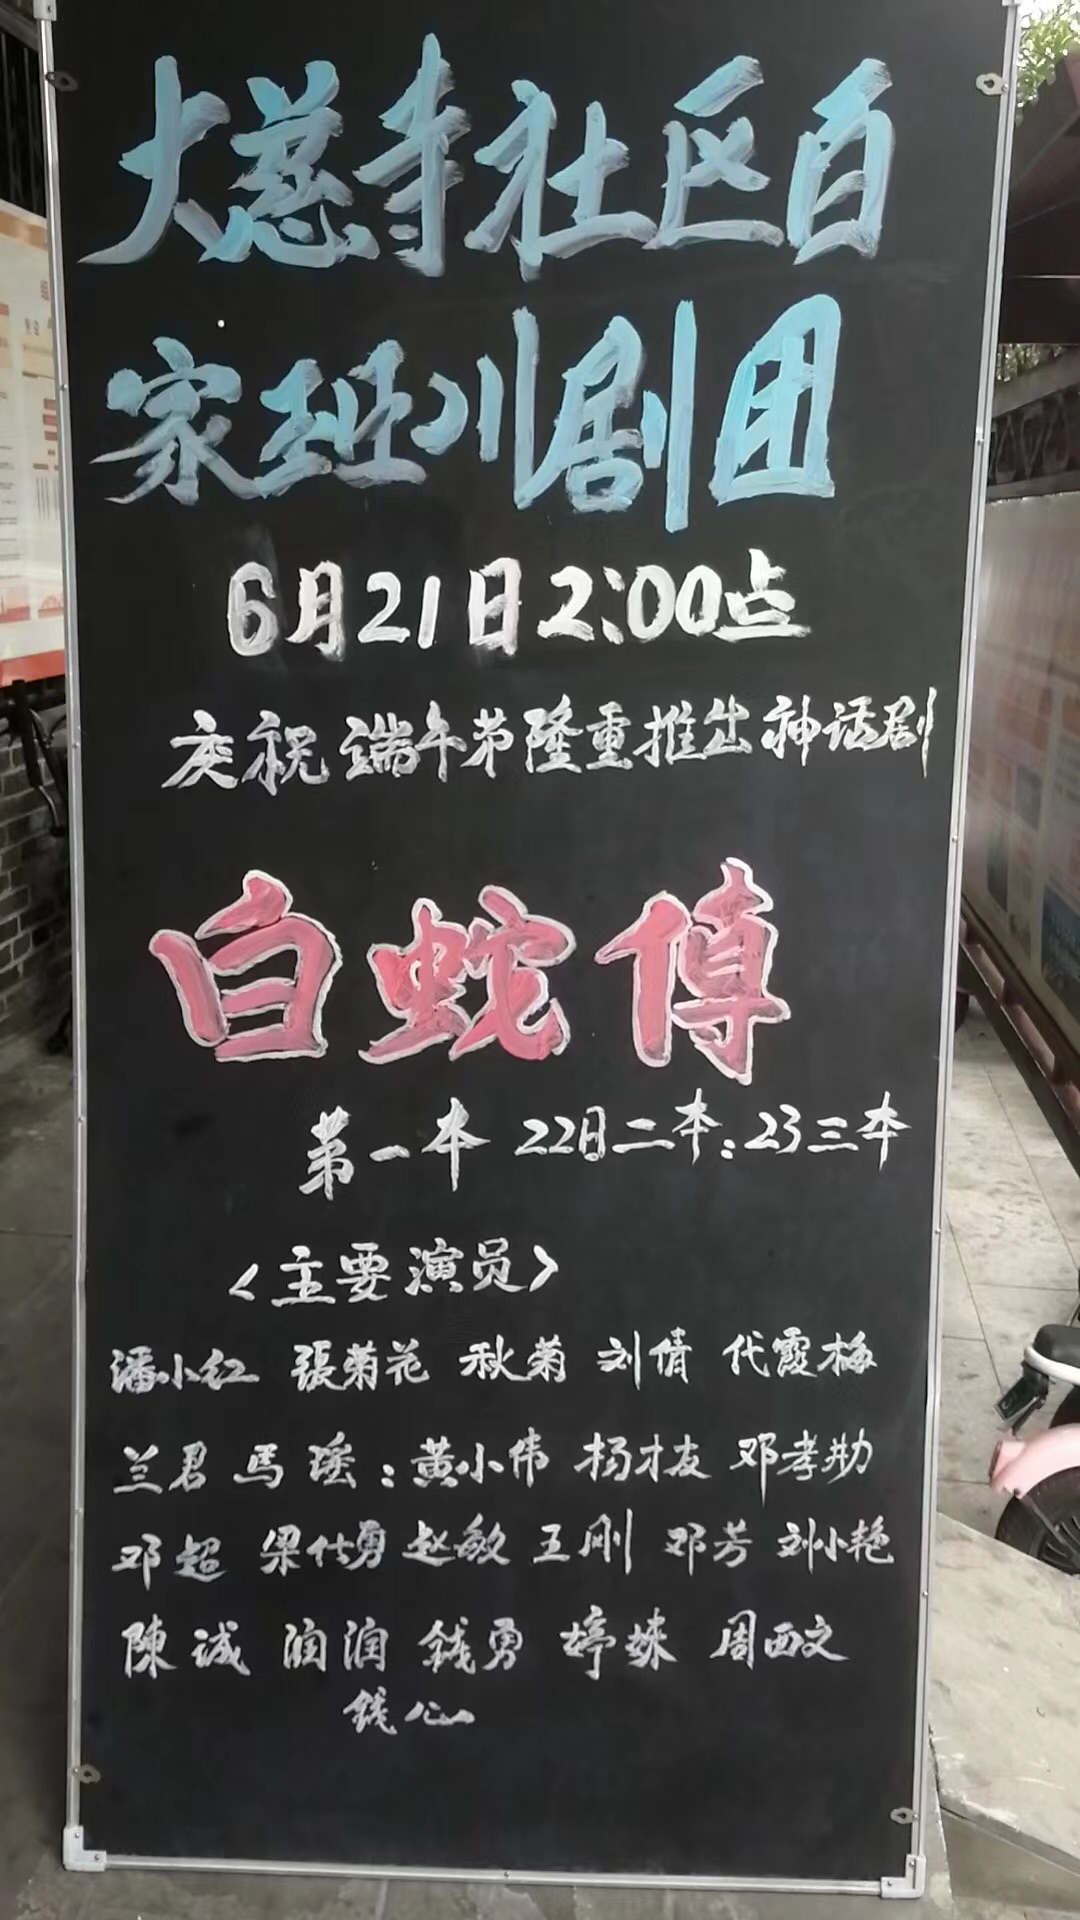 大慈寺社区百
家班川剧团
6月21日2:00点
庆祝端午节隆重推出神话剧
白蛇傅
第一本 22日二本:23三本
<主要演员>
潘小红 張菊花 秋菊 刘倩 代霞梅
兰君 馬瑶:黄小伟 杨才友 邓孝勋
邓超 梁仕勇 赵敏 王刚 邓芳 刘小艳
陳诚 润润 钱勇 婷姝 周西文
钱心